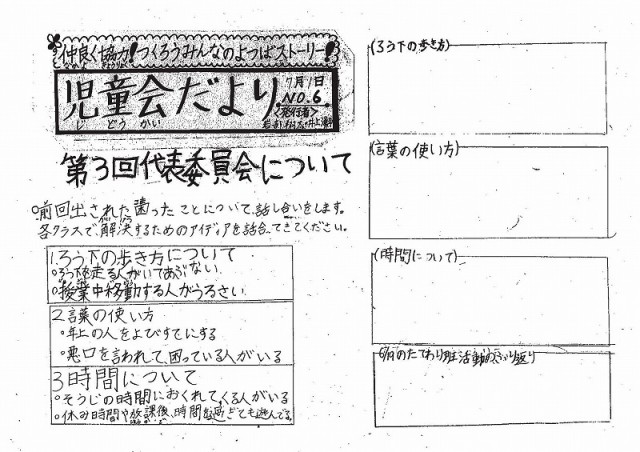 仲良く協力！つくろうみんなのよつばストーリー！
児童会だより
じどうかい
7月1日
NO.6
<発行者>
第3回代表委員会について
○前回出された困ったことについて、話し合いをします。
各クラスで、解決するためのアイディアを話合ってきてください。
1ろう下の歩き方について
○ろう下を走る人がいてあぶない
○授業中移動する人がうるさい
2言葉の使い方
○年上の人をよびすてにする
○悪口を言われて、困っている人がいる
3時間について
○そうじの時間におくれてくる人がいる
○休み時間や放課後、時間を過ぎても遊んでる。
(ろう下の歩き方)
(言葉の使い方)
(時間について)
6月のたてわり班活動のふり返り